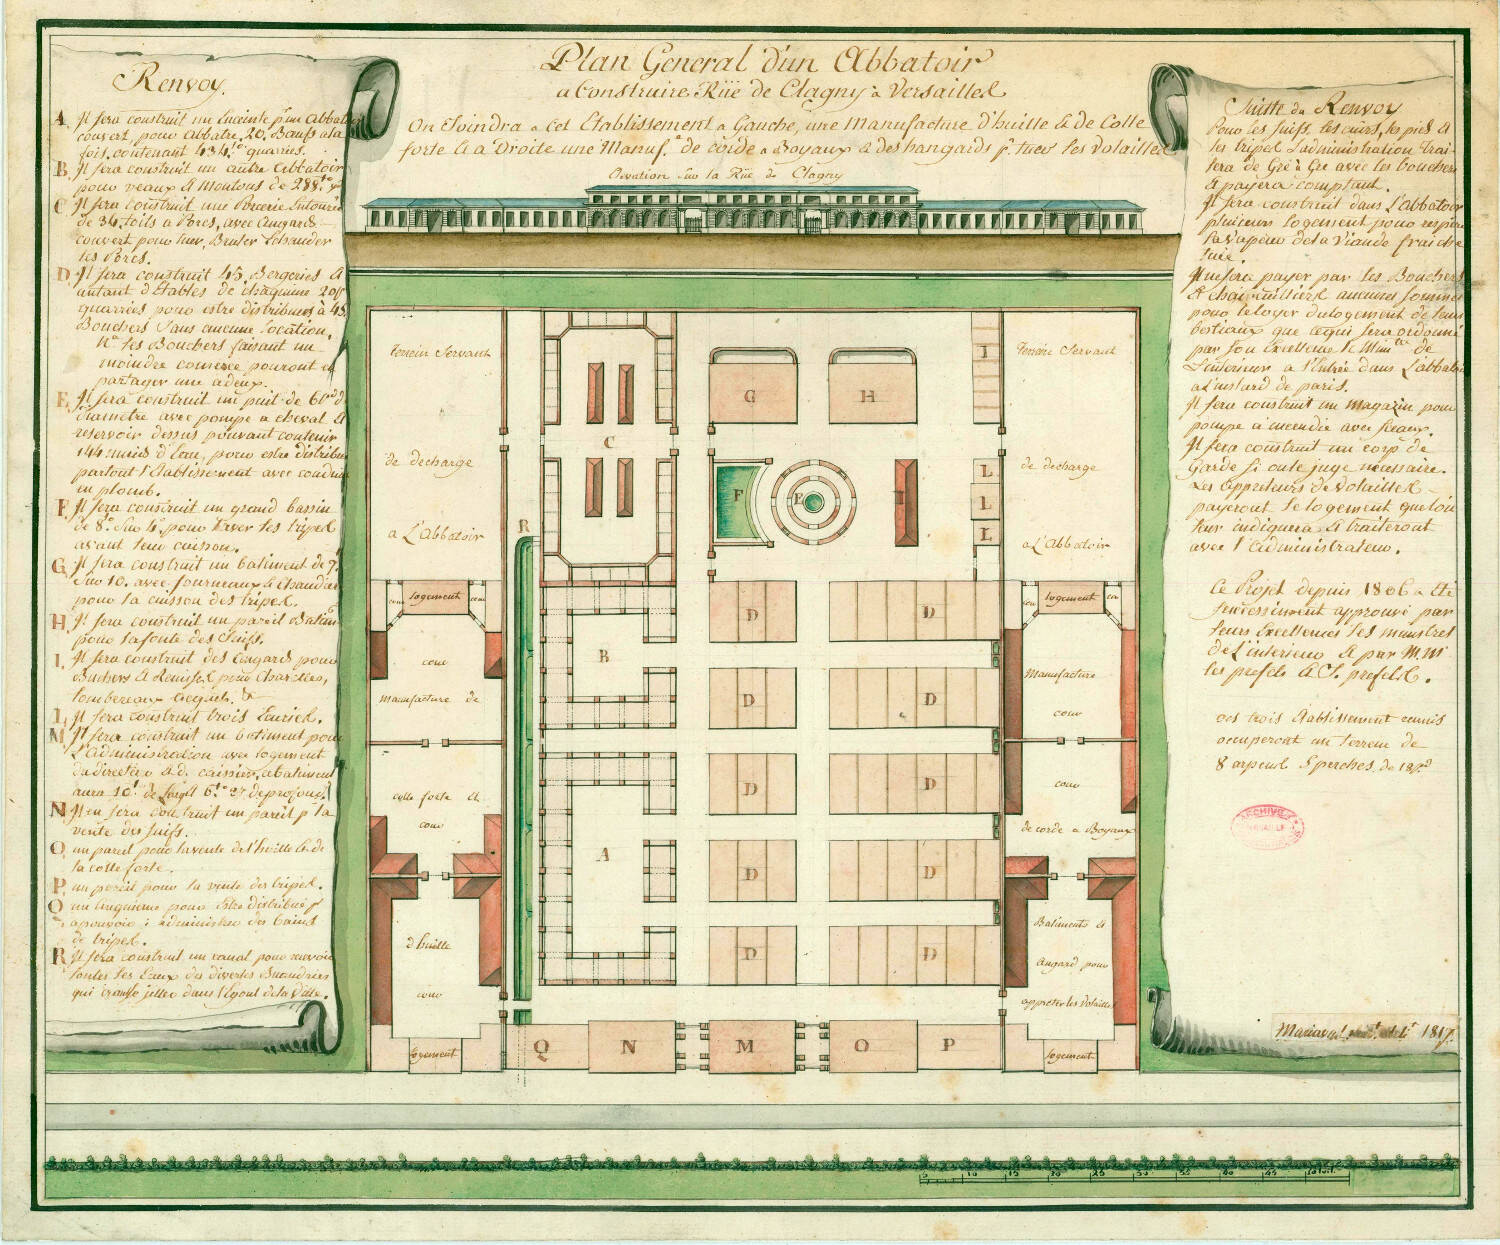 Plan General d'un Abbatoir
a Construire Rüe de Clagny a Versailles
On Joindra a cet Etablissement a Gauche, une Manufacture d'huille & de Colle
forte & a Droite une Manuf.re de corde a Boyaux & des hangards p.r tuer les volailles
Elevation sur la Rüe de Clagny
Renvoy.
A Il sera construit un Enceinte p.r un Abbatoir
couvert, pour abbatre, 20 Bœufs a la
fois, contenant 434.to quarries.
B. Il sera construit un autre Abbatoir
pour veaux & moutons de 288.to
C Il sera construit une Porcerie Entourée
de 34 toits a Porcs, avec Angards
couvert pour tuer, Bruler Echauder
les Porcs.
D Il sera construit 45 Bergeries &
autant d'Etables de chaqu'une 20
quarriés pour estre distribués à 45
Bouchers sans aucune location,
N.a les Bouchers faisant un
moindre comerce pouront en
partager une a deux.
E Il sera construit un puit de 60
diametre avec pompe a cheval &
reservoir dessus pouvant contenir
144 muids d'Eau, pour estre distribué
partout l'Etablissement avec conduits
en plomb.
F Il sera construit un grand bassin
de 8.to sur 4.to pour laver les tripes
avant leur cuisson.
G Il sera construit un batiment de 7
sur 10. avec fourneaux & chaudieres
pour la cuisson des tripes.
H Il sera construit un pareil Batiment
pour la fonte des Suifs.
I. Il sera construit des Angards pour
Buchers & Remises pour Charettes,
tombereaux &c
L Il sera construit trois Ecuries.
M Il sera construit un batiment pour
l'Administration avec logement
du directeur & du caissier, ce batiment
aura 10.to de Long & 6.to de profond.
N. Il en sera construit un pareil p.r la
vente des Suifs.
O. un pareil pour la vente de l'huille & de
la colle forte.
P un pareil pour la vente des tripes.
Q un cinquieme pour estre distribué p.r
des bains
de tripes.
R Il sera construit un canal pour recevoir
toutes les Eaux des diverses Buanderies
qui jetter dans l'Egout de la Ville.
Suitte du Renvoy
Pour les Suifs, les cuirs, les pieds &
les tripes l'administration trai-
tera de Gré à Gré avec les bouchers
& payera comptant.
Il sera construit dans l'abbatoir
plusieurs logements pour
la vapeur de la viande fraiche
tuée.
Il ne sera payer par les Bouchers
& chaircuittiers aucunes sommes
pour le loyer du logement de leurs
bestiaux que ce qui sera ordonné
par son Excellence le Min.tre de
l'interieur a l'Entrée dans l'abbatoir
a l'instard de paris.
Il sera construit un Magazin pour
pompe a incendie avec seaux.
Il sera construit un corp de
Garde si on le juge nécessaire.
Les Appreteurs de volailles
payeront le logement que l'on
leur indiquera & traiteront
avec l'Administrateur.
Ce Projet depuis 1806 a été
successivement approuvé par
leurs Excellences les ministres
de L'interieur & par M.M.
les prefets & S. prefets.
ces trois Etablissement réunis
occuperont un terrein de
8 arpents 5 perches de 18 p.ds
ARCHIVES
1817.
terrein Servant
de decharge
a L'Abbatoir
terrein Servant
de decharge
a L'Abbatoir
G
H
I
C
F
E
I
L
L
L
R
cour
logement
cour
cour
manufacture de
colle forte &
cour
d'huille
cour
logement
B
A
D
D
D
D
D
D
D
D
D
D
cour
logement
cour
Manufacture
cour
cour
de corde a Boyaux
Batiments &
Angard pour
appreter les volailles
logement
Q
N
M
O
P
5
10
15
20
25
30
35
40
45
50 toises